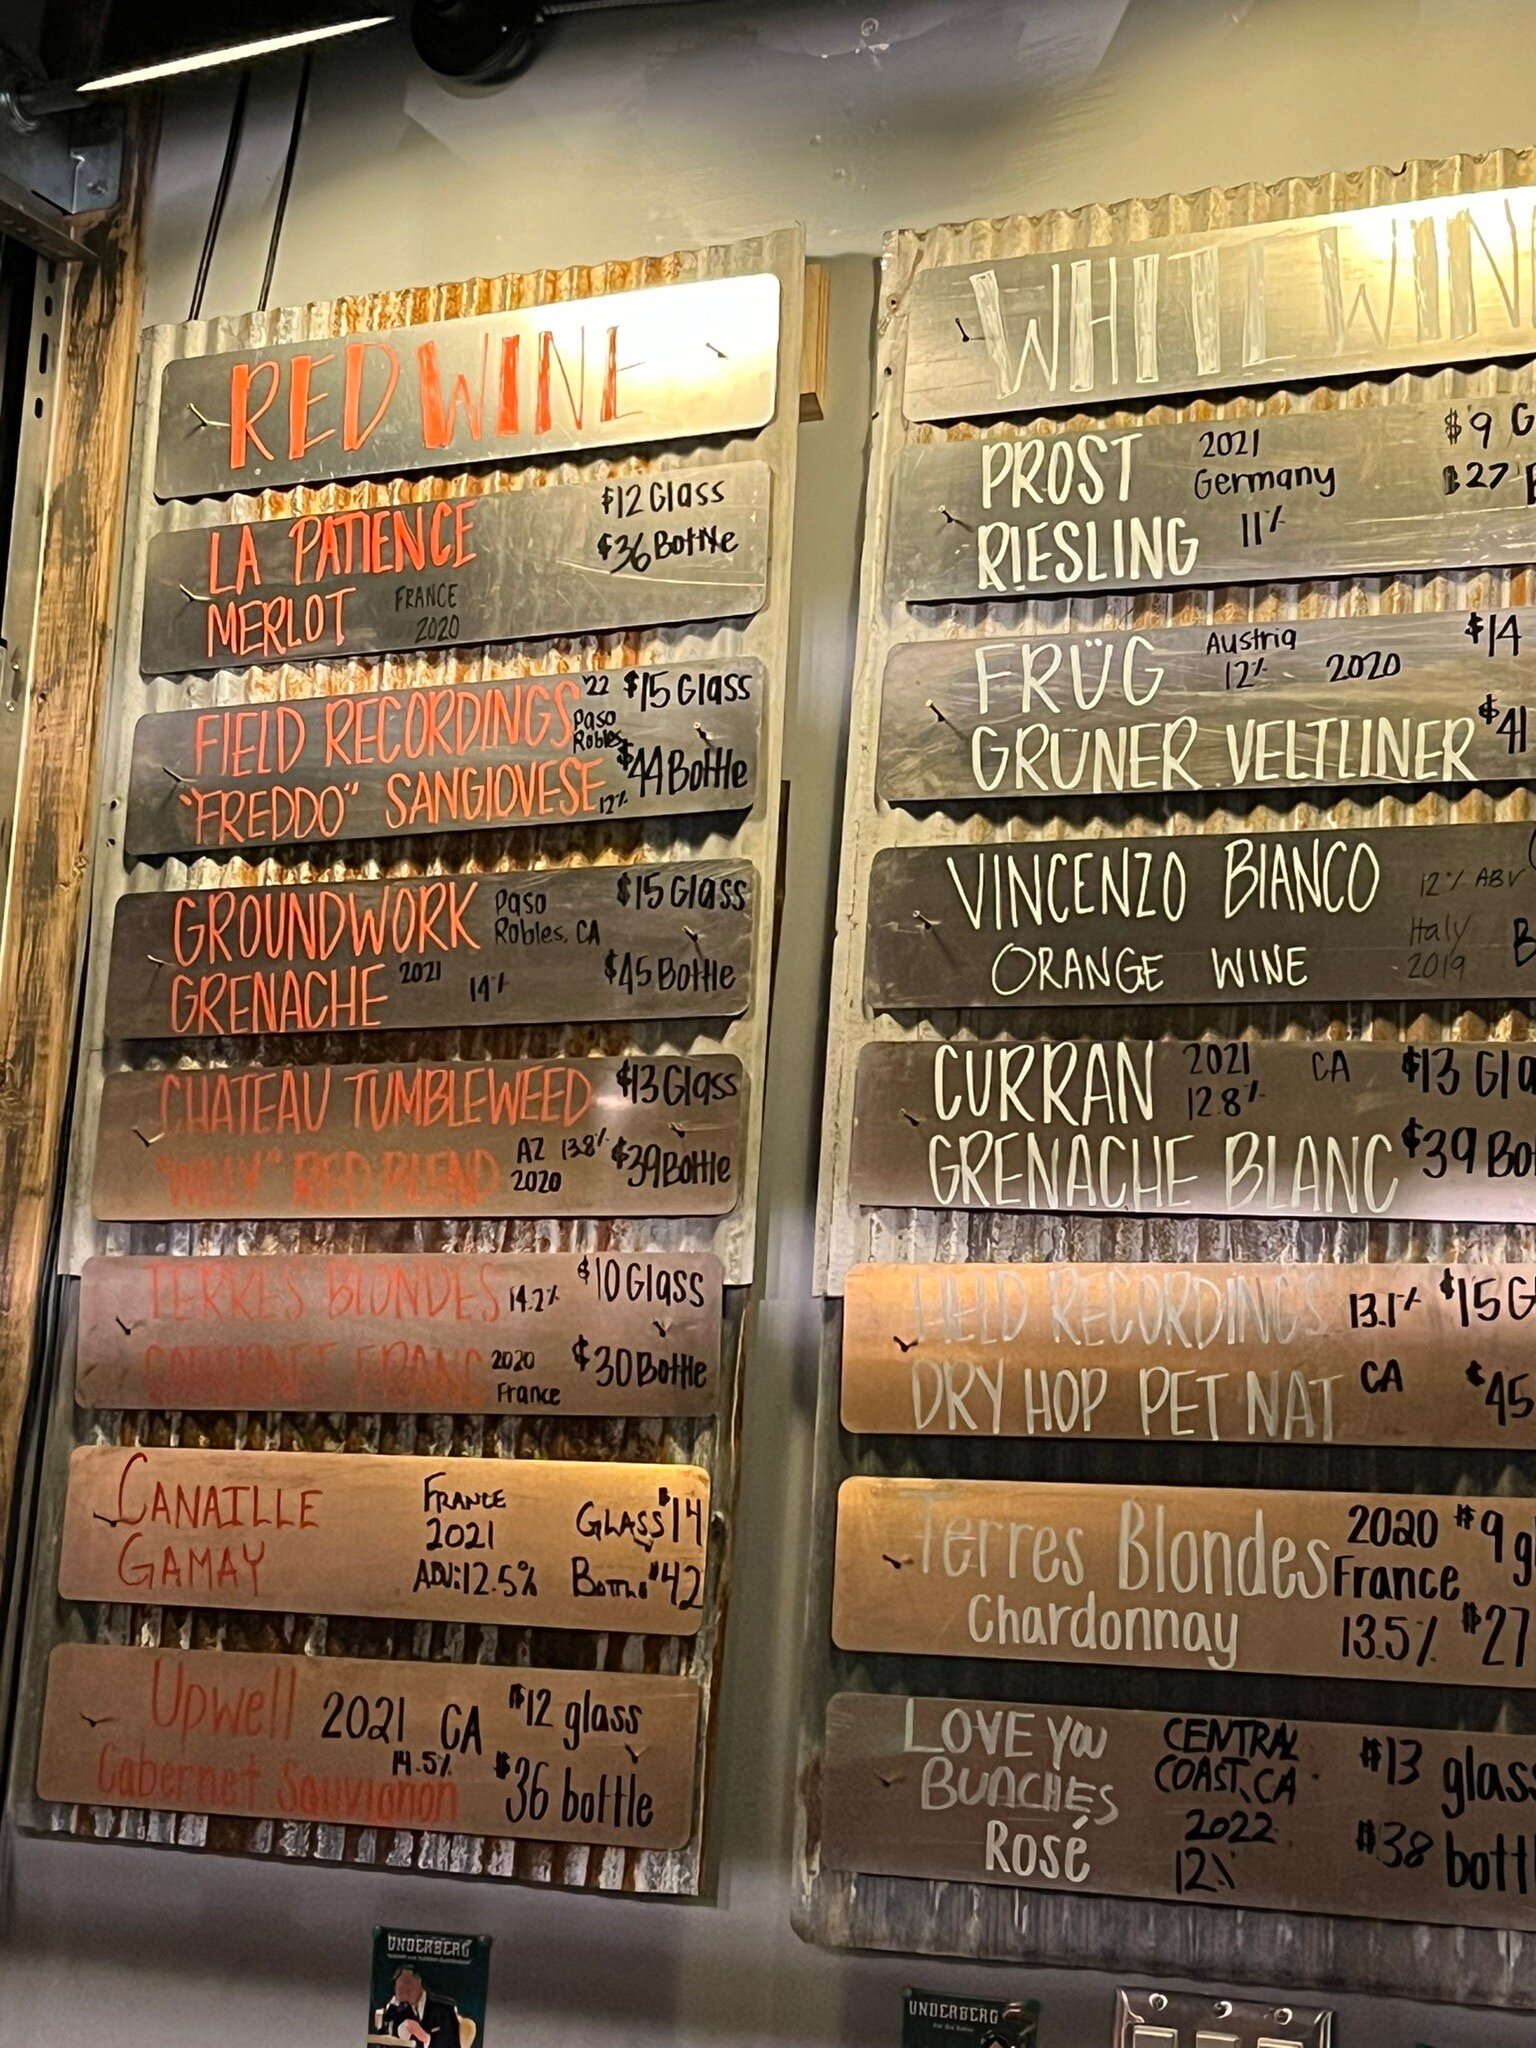 RED WINE
LA PATIENCE
MERLOT
FRANCE
2020
$12 Glass
$36 Bottle
FIELD RECORDINGS
"FREDDO" SANGIOVESE
'22
Paso
Robles
12%
$15 Glass
$44 Bottle
GROUNDWORK
GRENACHE
Paso
Robles, CA
2021 14%
$15 Glass
$45 Bottle
CHATEAU TUMBLEWEED
"WILLY" RED BLEND
AZ 13.8%
2020
$13 Glass
$39 Bottle
TERRES BLONDES
CABERNET FRANC
14.2%
2020
France
$10 Glass
$30 Bottle
CANAILLE
GAMAY
FRANCE
2021
ABV:12.5%
GLASS $14
BOTTLE $42
Upwell
Cabernet Sauvignon
2021 CA
14.5%
$12 glass
$36 bottle
WHITE WIN
PROST
RIESLING
2021
Germany
11%
$9 G
$27
FRÜG
GRÜNER VELTLINER
Austria
12% 2020
$14
$41
VINCENZO BIANCO
ORANGE WINE
12% ABV
Italy
2019
B
CURRAN
GRENACHE BLANC
2021
12.8%
CA
$13 Gla
$39 Bo
FIELD RECORDINGS
DRY HOP PET NAT
13.1%
CA
$15 G
$45
Terres Blondes
Chardonnay
2020
France
13.5%
$9 g
$27
LOVE YOU
BUNCHES
ROSÉ
CENTRAL
COAST, CA
2022
12%
$13 glass
$38 bott
UNDERBERG
UNDERBERG